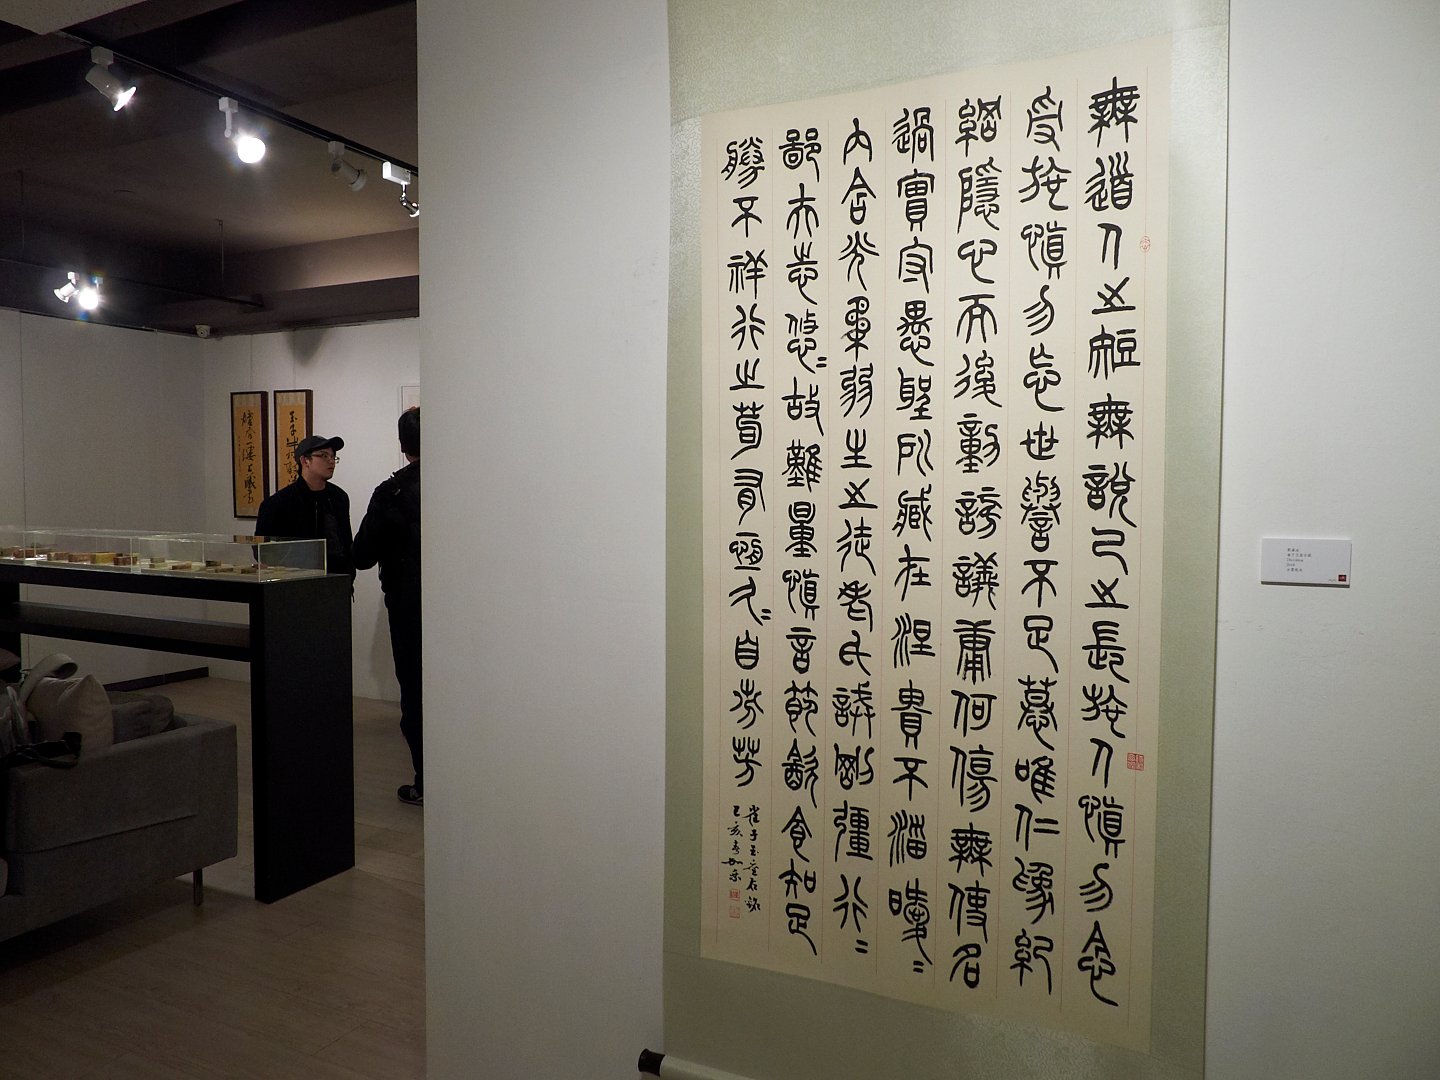 無道人之短無說己之長施人慎勿念
受施慎勿忘世譽不足慕唯仁為紀
綱隱心而後動謗議庸何傷無使名
過實守愚聖所臧在涅貴不淄曖〻
內含光柔弱生之徒老氏誡剛彊行〻
鄙夫志悠〻故難量慎言節飲食知足
勝不祥行之苟有恆久〻自芬芳
崔子玉座右銘
己亥春